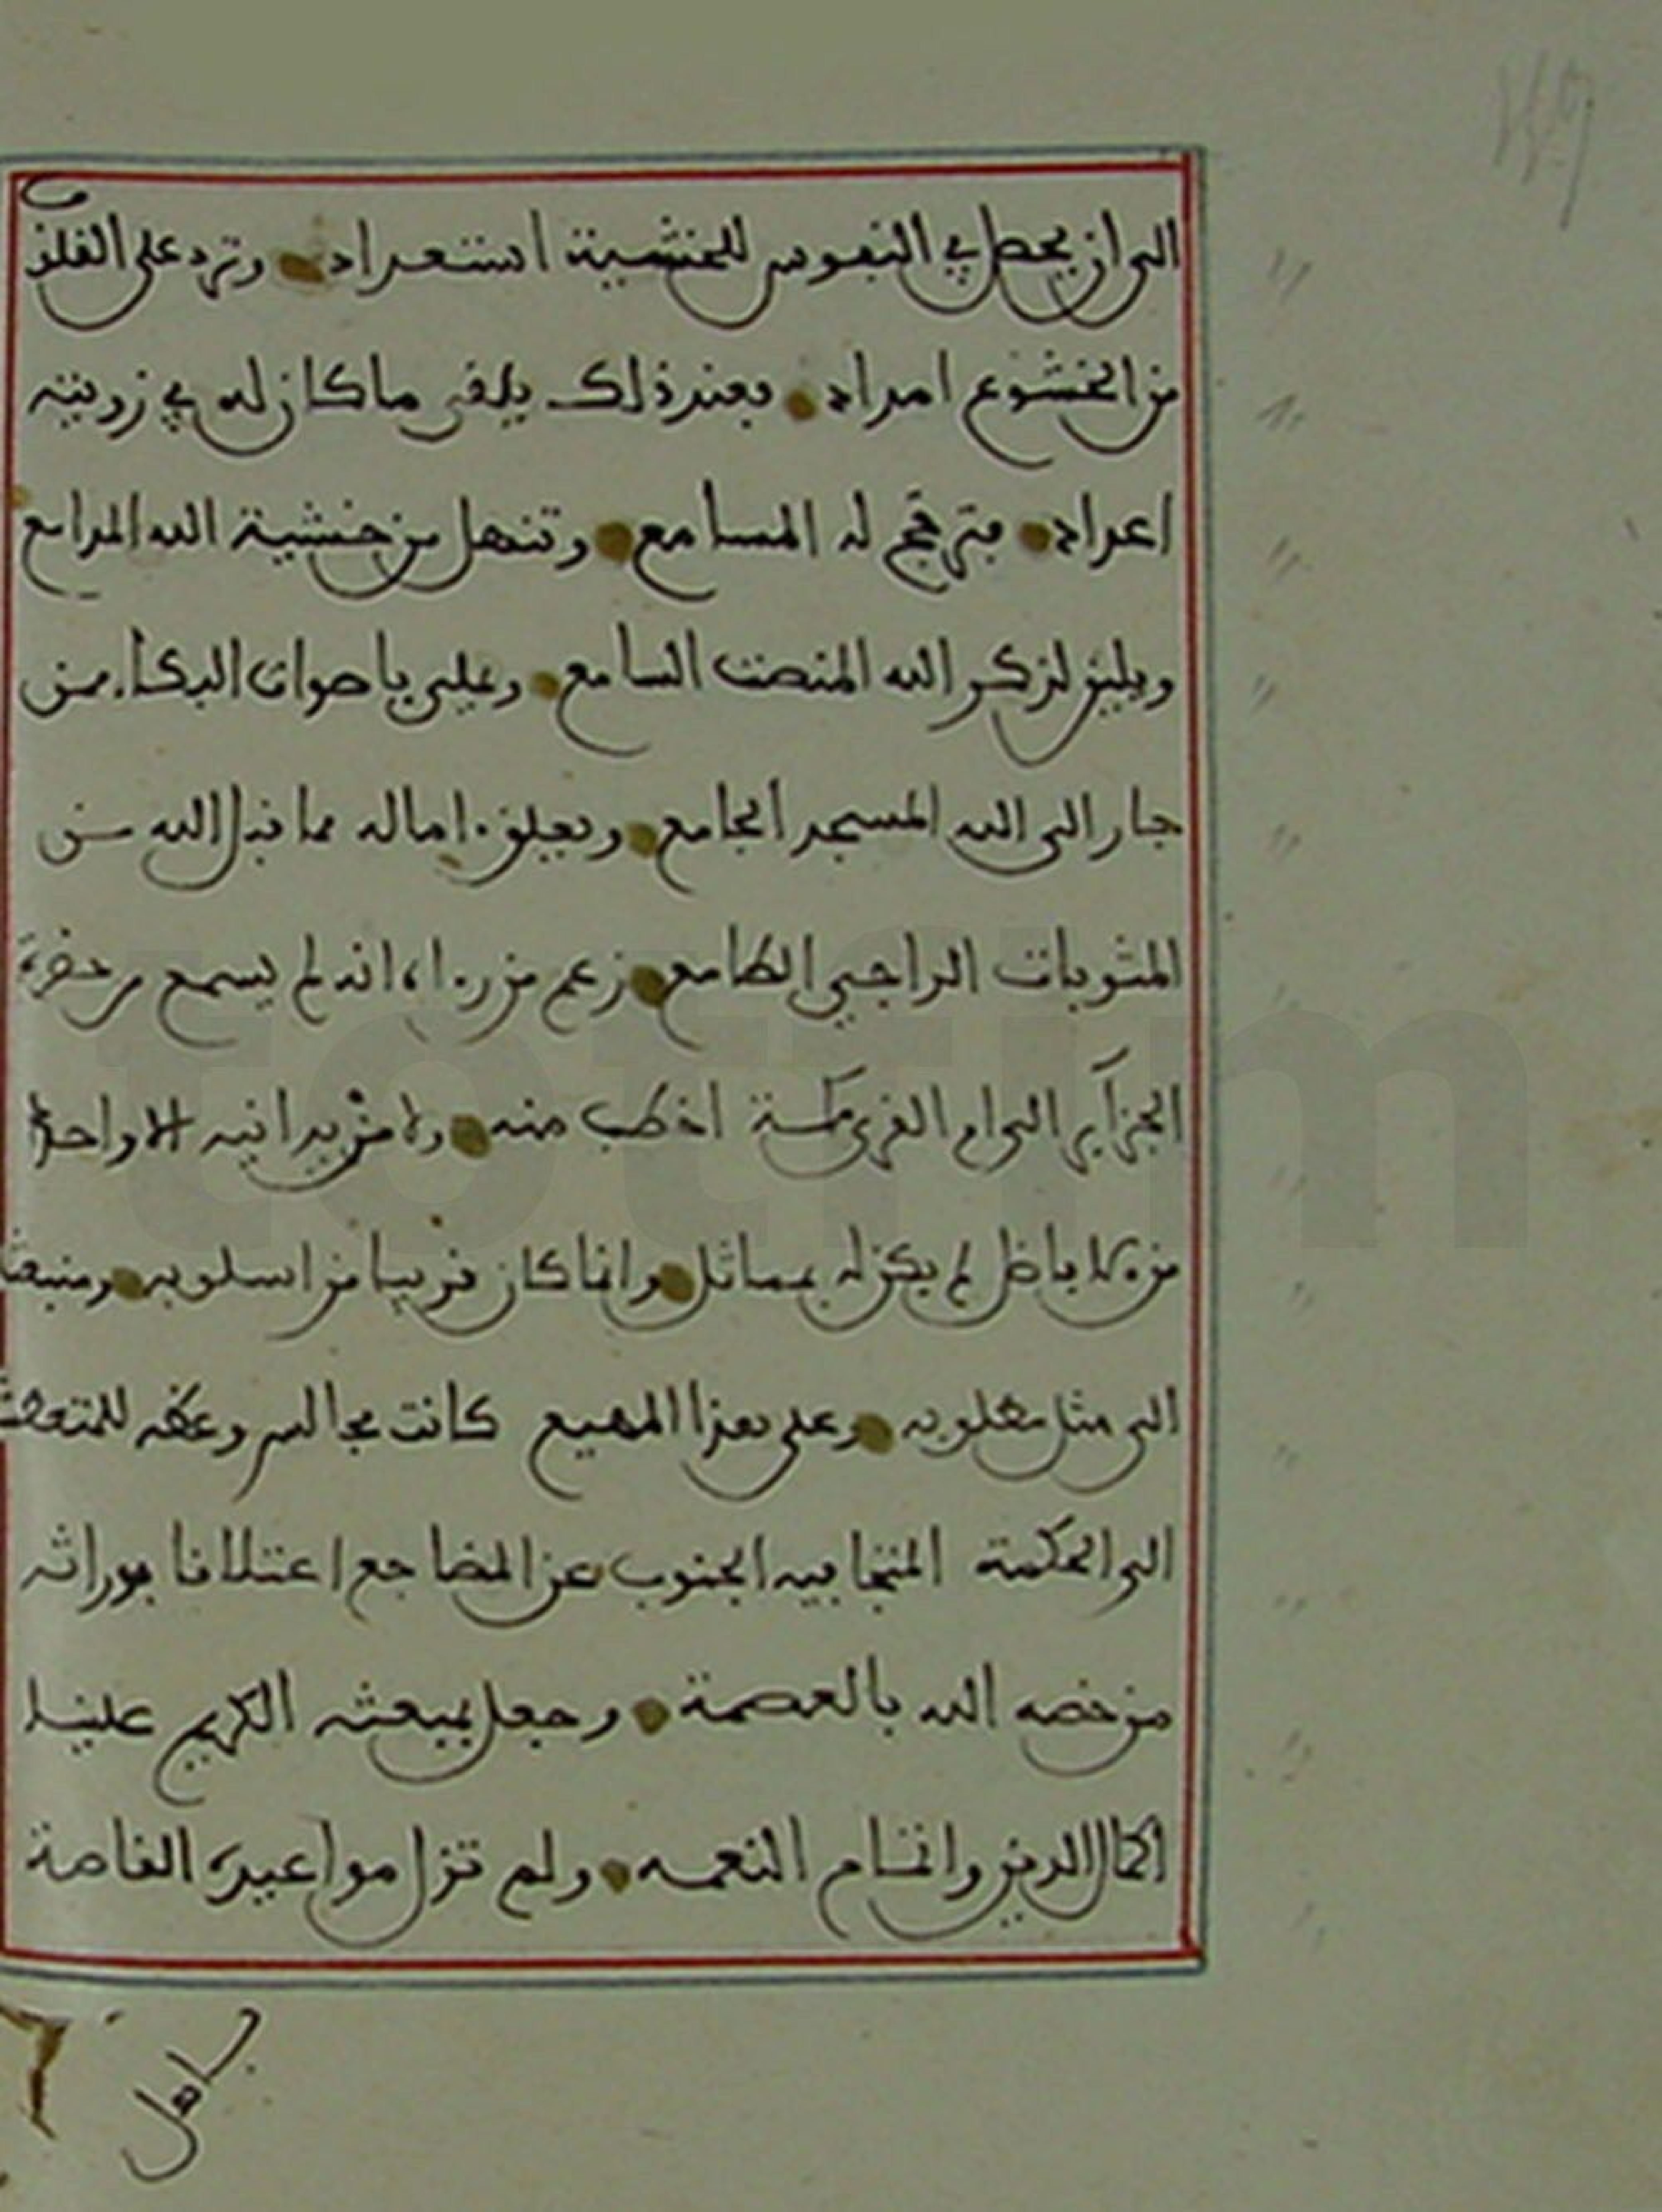 الى ان يحصل في النفوس للخشية استعداد وترد على القلوب
من الخشوع امداد فعند ذلك يلقى ما كان له في رويته
اعداد فترتج له المسامع وتنهل من خشية الله المدامع
ويلين لذكر الله المنصت السامع وعلى باصوات البكاء ممن
جار الى الله المسجد الجامع وتعلق اماله مما قبل الله من
المثوبات الراجي الطامع زعم من رءاه انه لم يسمع من حضرة
الجزاير الى ام القرى مكة اخطب منه ولا من يدانيه الا واحدا
من الافاضل لم يكن له بمماثل وانما كان قريبا من اسلوبه ومنبعثا
الى مثل مطلوبه وعلى هذا المهيع كانت مجالس وعظه للمتعطش
الى الحكمة المتجافيه الجنوب عن المضاجع اعتلاقا بوراثه
من خصه الله بالعصمة وجعل بمبعثه الكريم علينا
اكمال الدين واتمام النعمه ولم تزل مواعيده القاصة
totfim